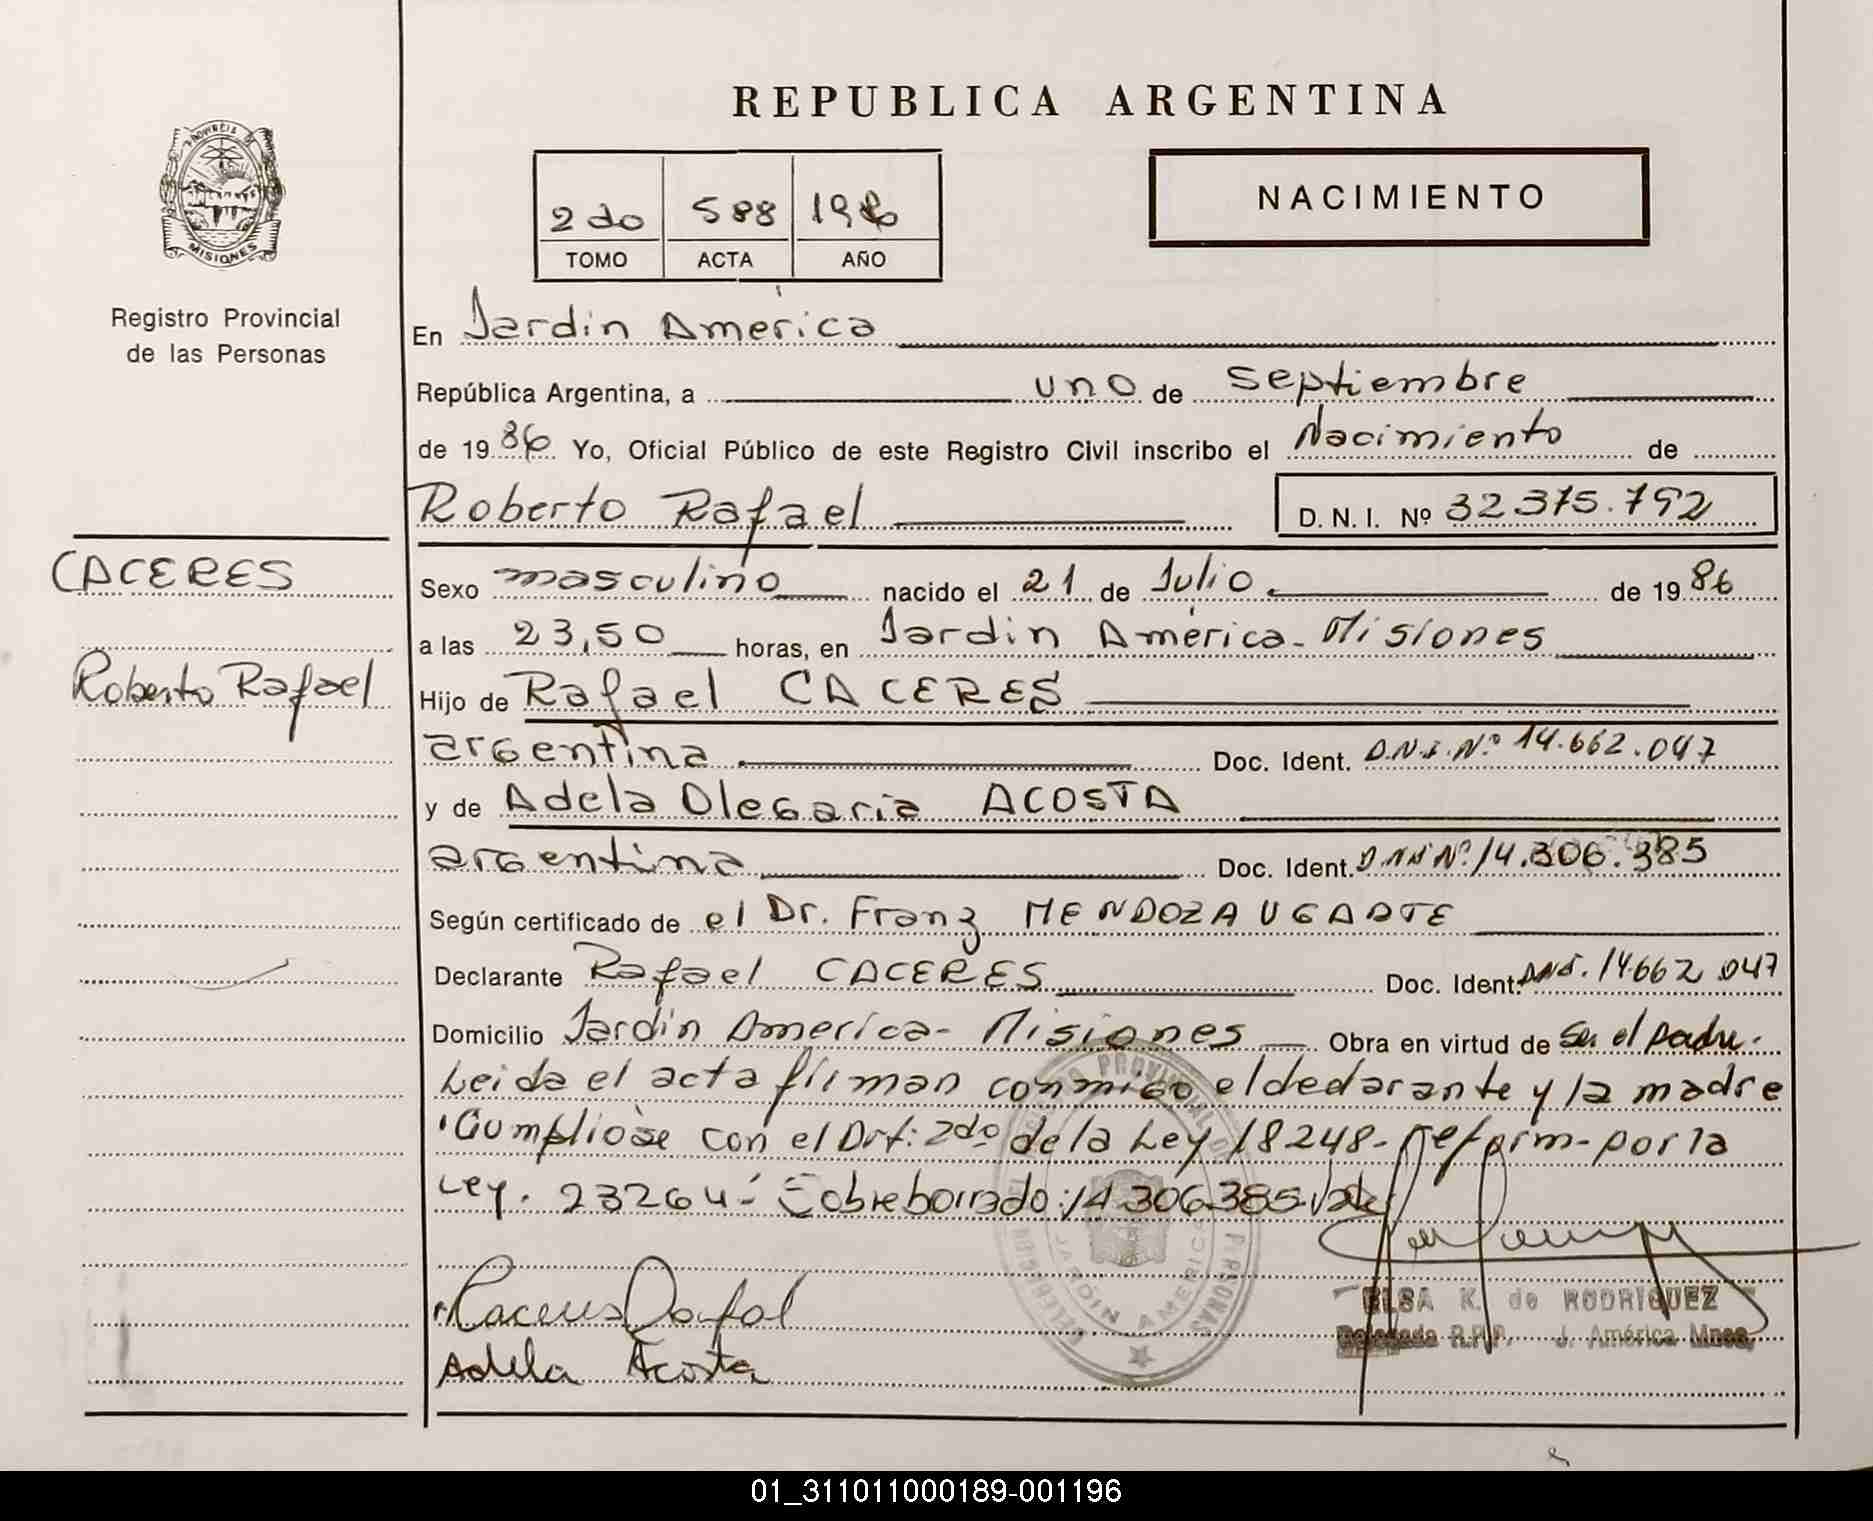 REPUBLICA ARGENTINA
PROVINCIA DE
MISIONES
Registro Provincial
de las Personas
2do 588 1986
TOMO ACTA AÑO
NACIMIENTO
En Jardin América
República Argentina, a uno de Septiembre
de 1986 Yo, Oficial Público de este Registro Civil inscribo el Nacimiento de
Roberto Rafael D. N. I. Nº 32375.792
CACERES
Roberto Rafael
Sexo masculino nacido el 21 de Julio de 1986
a las 23,50 horas, en Jardin América - Misiones
Hijo de Rafael CACERES
argentina Doc. Ident. D.N.I. Nº 14.662.047
y de Adela Olegaria ACOSTA
argentina Doc. Ident. D.N.I Nº. 14.306.385
Según certificado de el Dr. Franz MENDOZA UGARTE
Declarante Rafael CACERES Doc. Ident. DNI. 14.662.047
Domicilio Jardin America - Misiones Obra en virtud de Ser el padre.
Leida el acta firman conmigo el declarante y la madre
Cumpliose con el Art: 2do de la Ley 18248- reform- por la
Ley. 23264- Sobreborrado: 14.306.385. Vale
REGISTRO PROVINCIAL DE LAS PERSONAS
JARDIN AMERICA
Caceres Rafael
Adela Acosta
ELSA K. de RODRIGUEZ
Delegada R.P.P. J. América Mnes.
01_311011000189-001196